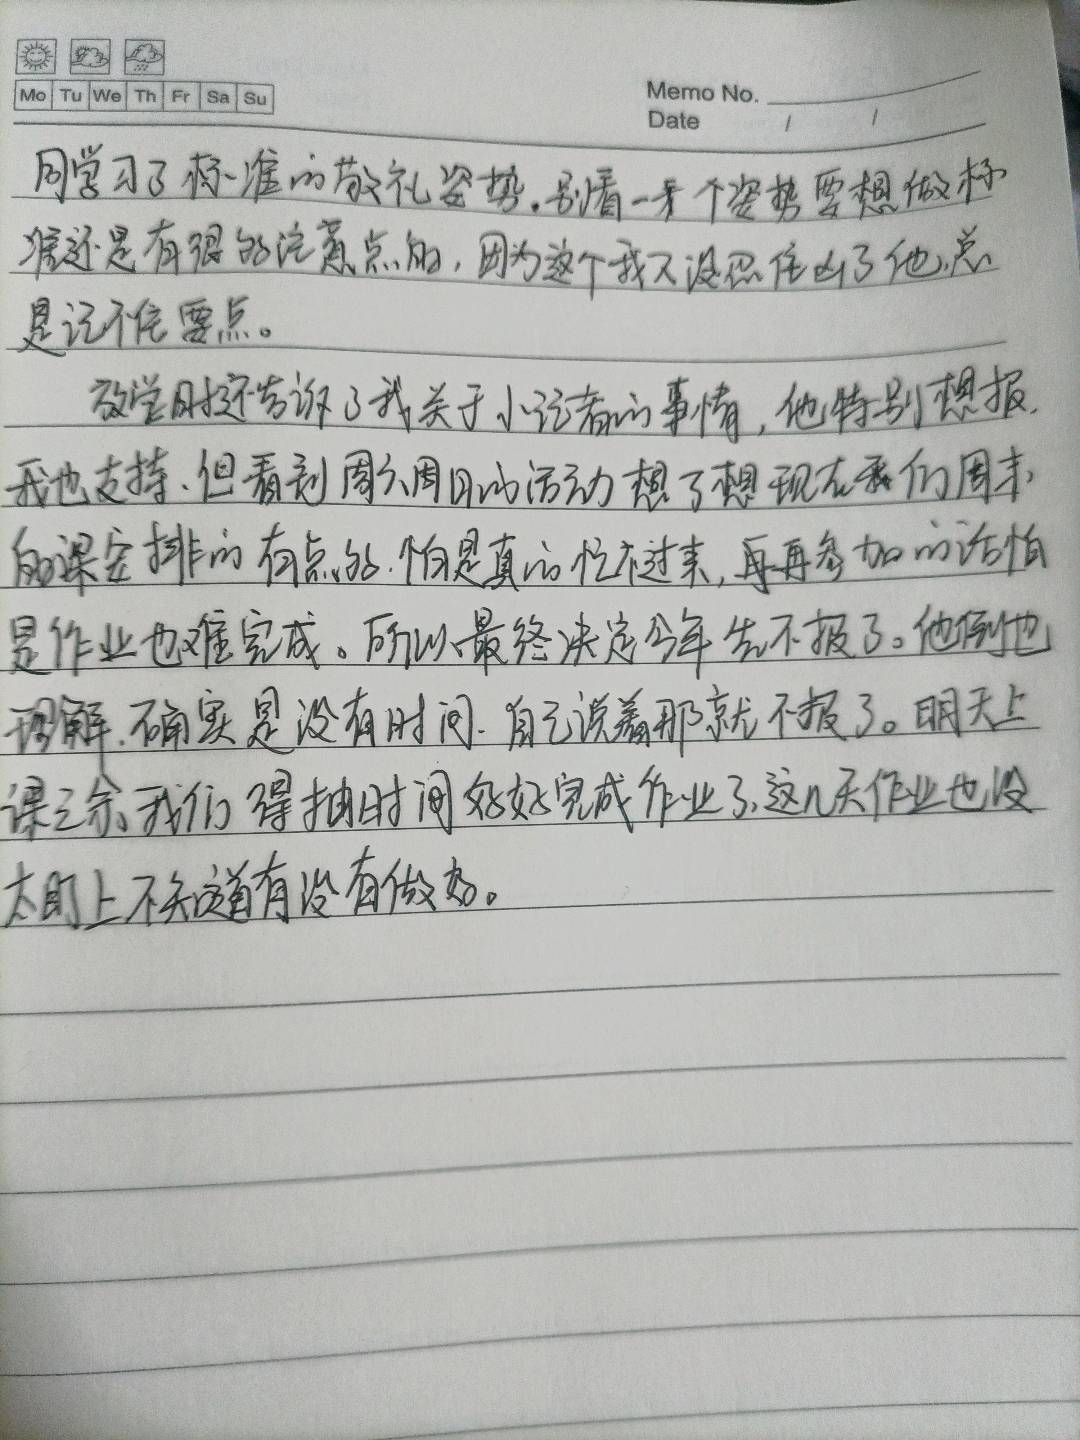 Mo Tu We Th Fr Sa Su
Memo No.
Date / /
同学习了标准的敬礼姿势。别看一个姿势要想做标
准还是有很多注意点的,因为这个我又没忍住凶了他,总
是记不住要点。
放学时还告诉了我关于小记者的事情,他特别想报,
我也支持,但看到周六周日的活动想了想现在我们周末
的课安排的有点多,怕是真的忙不过来,再再参加的话怕
是作业也难完成。所以最终决定今年先不报了。他倒也
理解,确实是没有时间,自己说着那就不报了。明天上
课之余我们得抽时间好好完成作业了,这几天作业也没
太盯上不知道有没有做好。